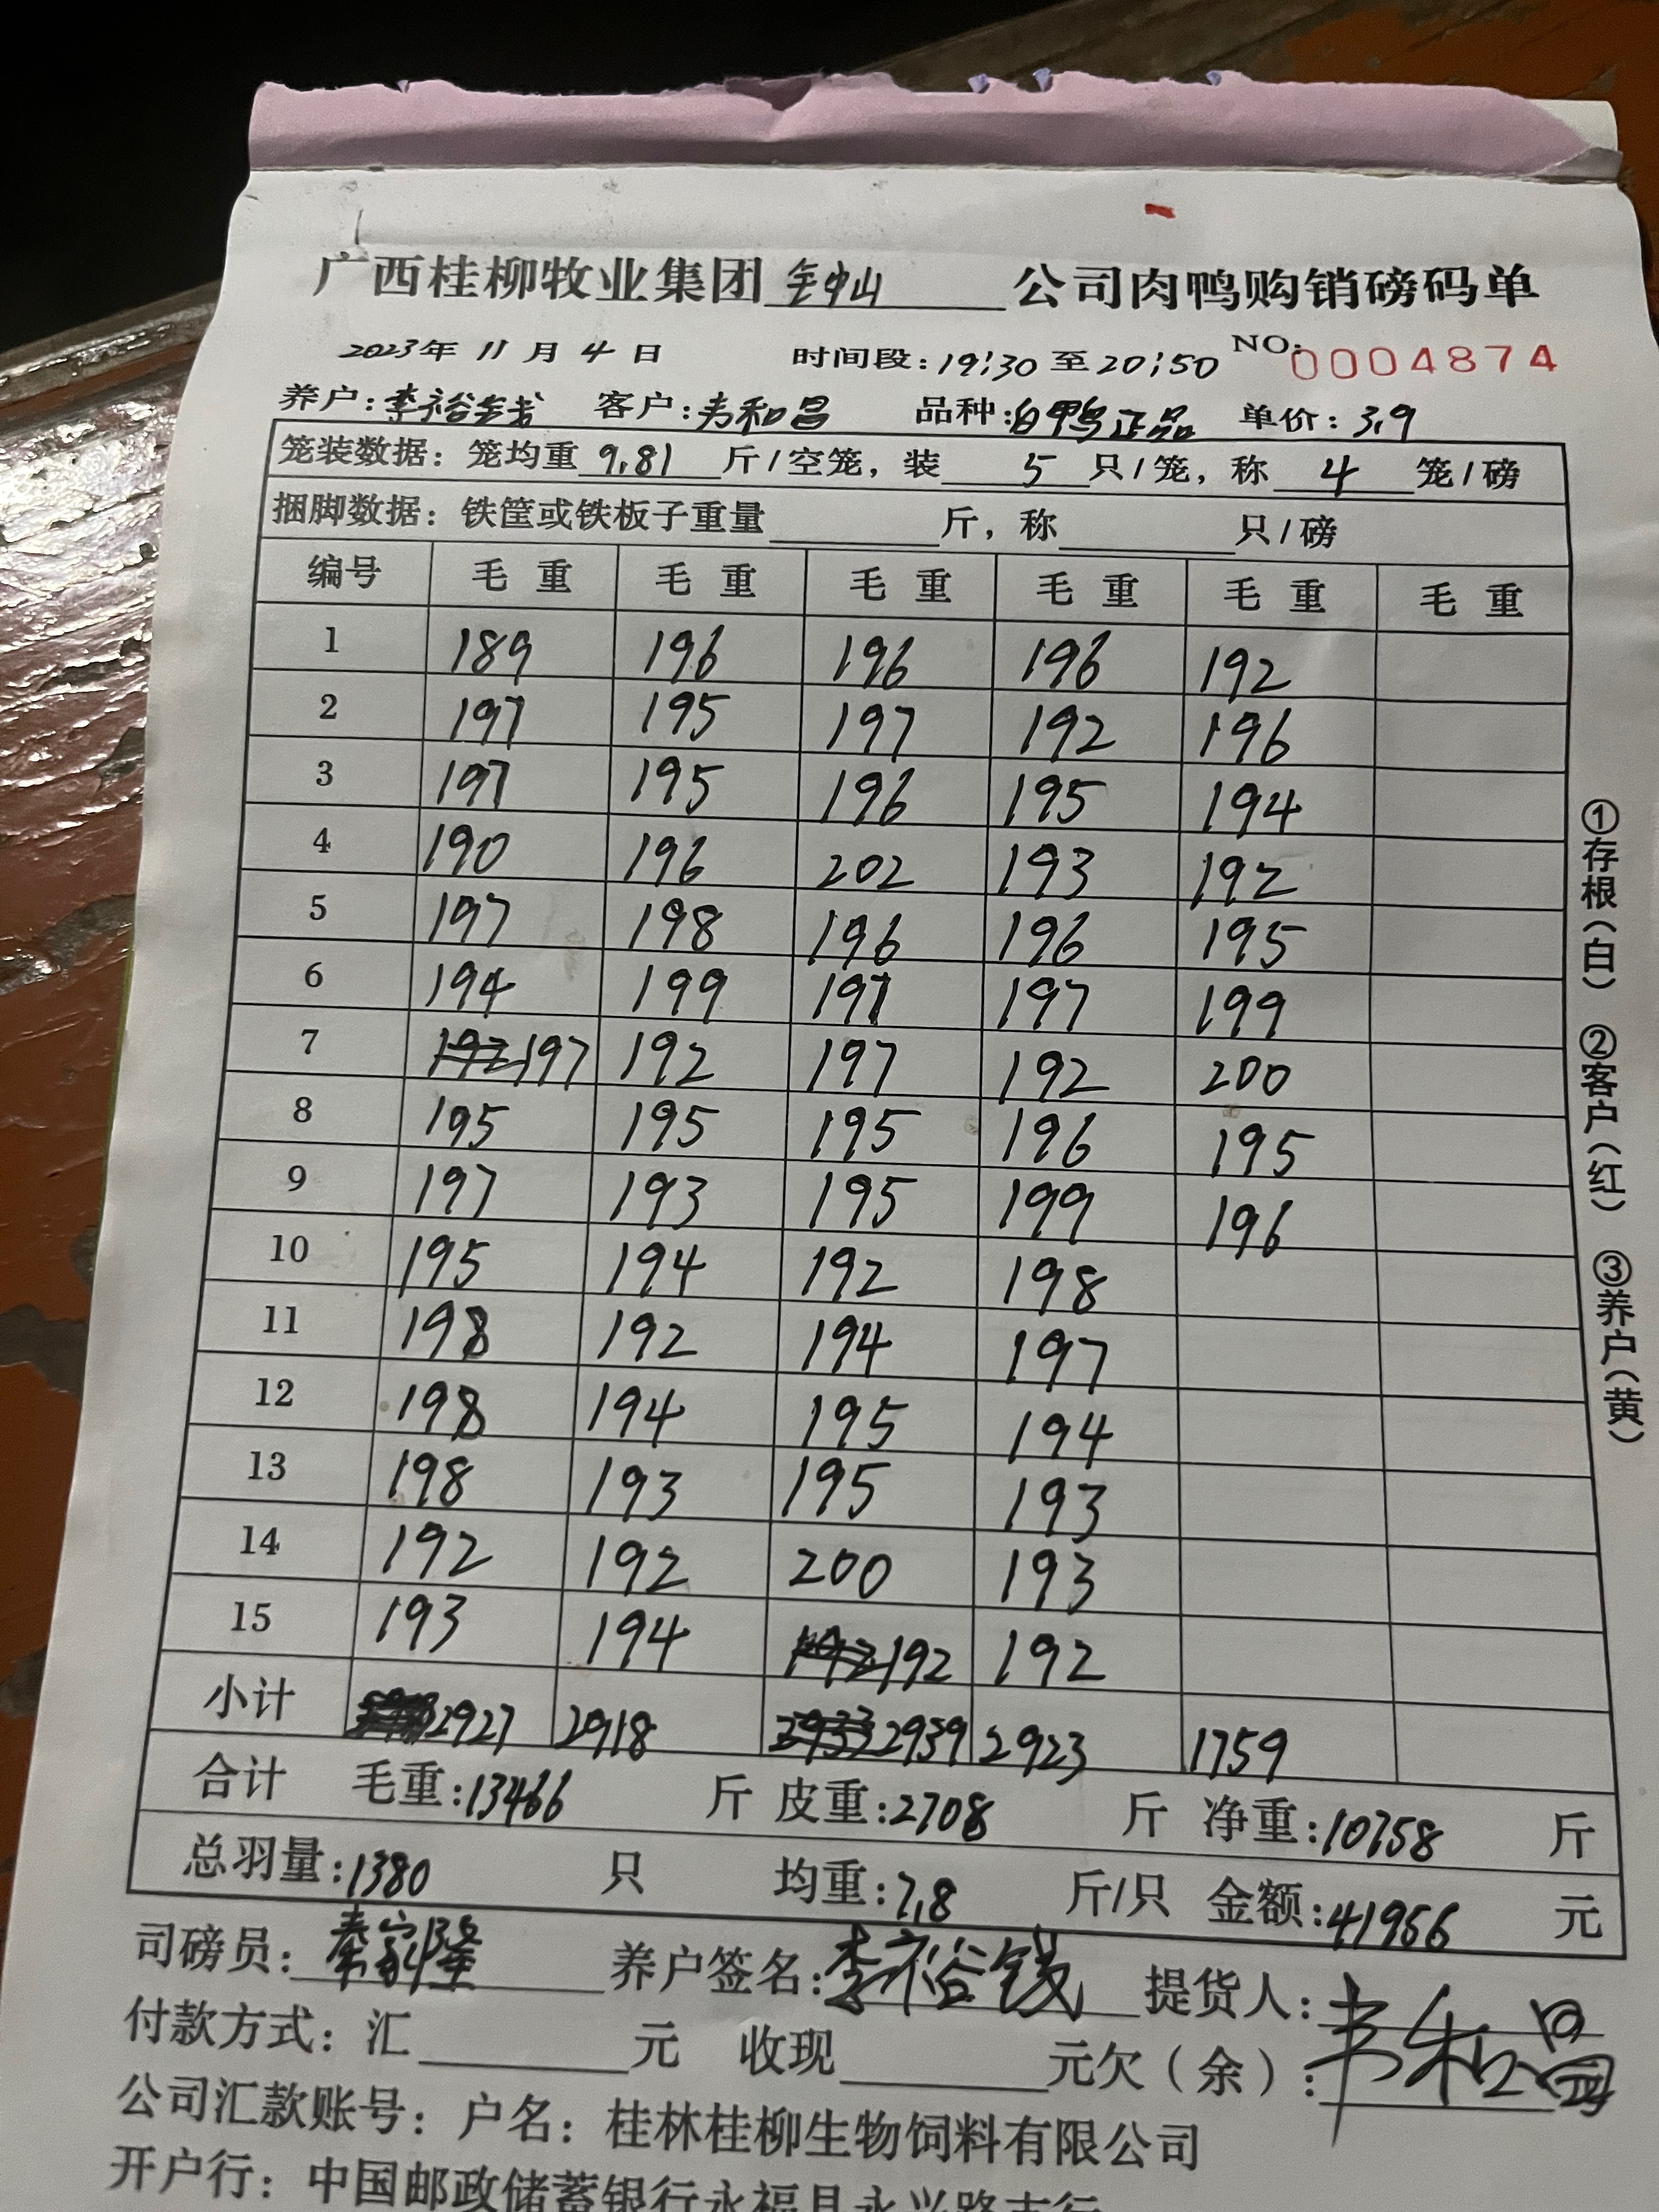 广西桂柳牧业集团 钟山 公司肉鸭购销磅码单
2023年 11 月 4 日 时间段:19:30 至 20:50 NO:0004874
养户:李裕钱 客户:韦和昌 品种:白鸭正品 单价:3.9
笼装数据:笼均重 9.81 斤/空笼,装 5 只/笼,称 4 笼/磅
捆脚数据:铁筐或铁板子重量 斤,称 只/磅
编号 毛重 毛重 毛重 毛重 毛重 毛重
1 189 196 196 196 192
2 197 195 197 192 196
3 197 195 196 195 194
4 190 196 202 193 192
5 197 198 196 196 195
6 194 199 197 197 199
7 192 197 192 197 192 200
8 195 195 195 196 195
9 197 193 195 199 196
10 195 194 192 198
11 198 192 194 197
12 198 194 195 194
13 198 193 195 193
14 192 192 200 193
15 193 194 192 192
小计 2927 2918 2933 2939 2923 1759
合计 毛重:13466 斤 皮重:2708 斤 净重:10758 斤
总羽量:1380 只 均重:7.8 斤/只 金额:41956 元
司磅员:秦家隆 养户签名:李裕钱 提货人:韦和昌
付款方式:汇 元 收现 元欠(余):
公司汇款账号:户名:桂林桂柳生物饲料有限公司
开户行:中国邮政储蓄银行永福县永兴路支行
①存根(白) ②客户(红) ③养户(黄)